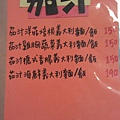 茄汁
茄汁洋菇培根義大利麵/飯 150
茄汁雞胸蔬菜義大利麵/飯 150
茄汁德式香腸義大利麵/飯 150
茄汁海鮮義大利麵/飯 190